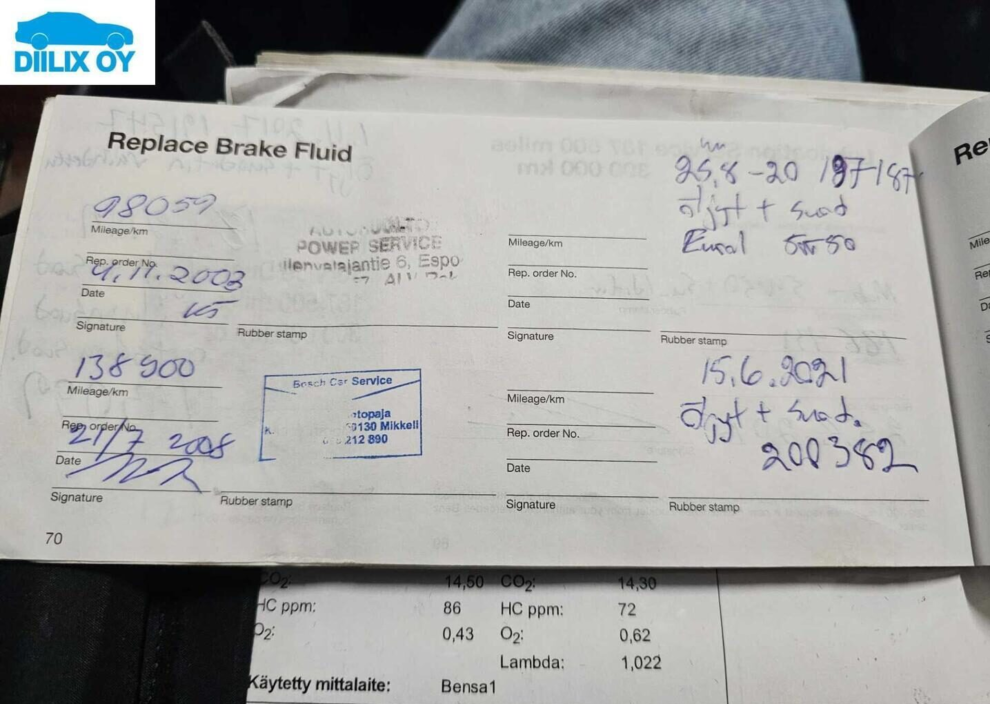 DIILIX OY
Replace Brake Fluid
98059
Mileage/km
Rep. order No.
4.11.2003
Date
Signature
POWER SERVICE
6, Espo
Rubber stamp
138900
Mileage/km
Rep. order No.
21/7 2008
Date
Signature
Bosch Car Service
topaja
0130 Mikkeli
212 890
Rubber stamp
70
25,8-20 197-187
öljyt + suod
5W50
Mileage/km
Rep. order No.
Date
Signature
Rubber stamp
15.6.2021
öljyt + suod.
200382
Mileage/km
Rep. order No.
Date
Signature
Rubber stamp
Re
CO2: 14,50 CO2: 14,30
HC ppm: 86 HC ppm: 72
O2: 0,43 O2: 0,62
Lambda: 1,022
Käytetty mittalaite: Bensa1